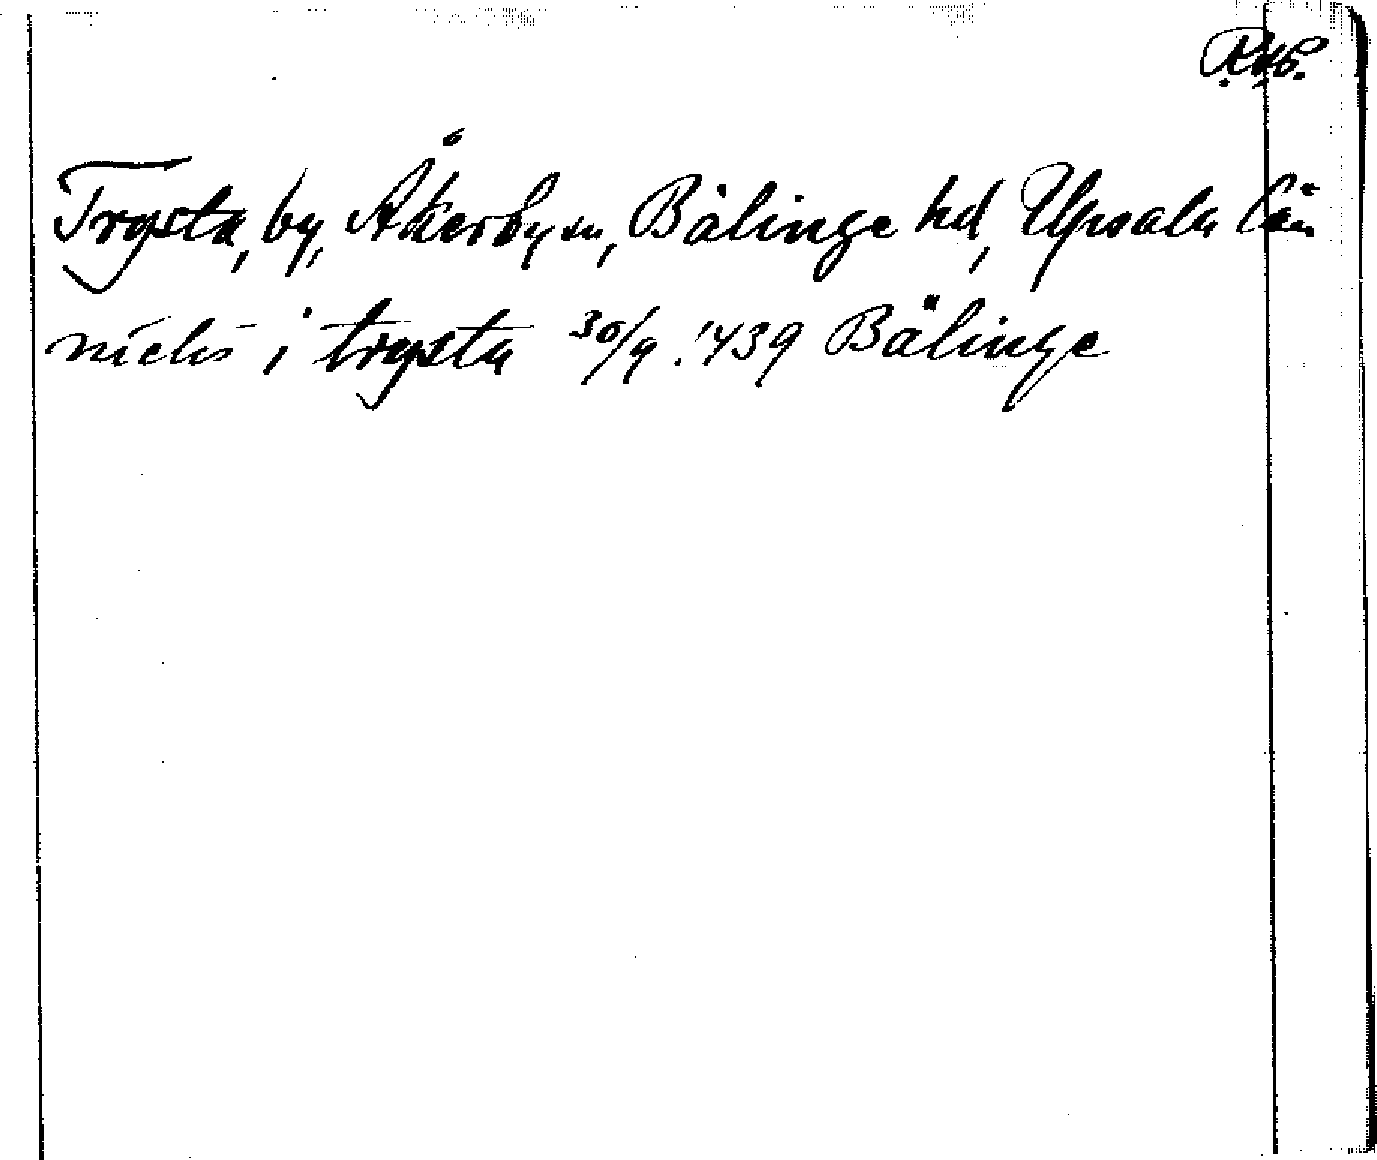 Trysta, by, Åkerby sn, Bälinge hd, Upsala län
niclis i trysta 30/9 1439 Bälinge